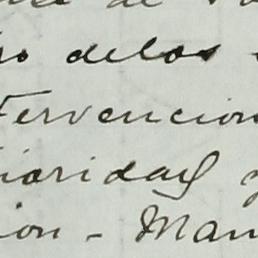 de
delos
tervencion
ioridad y
ion - Man